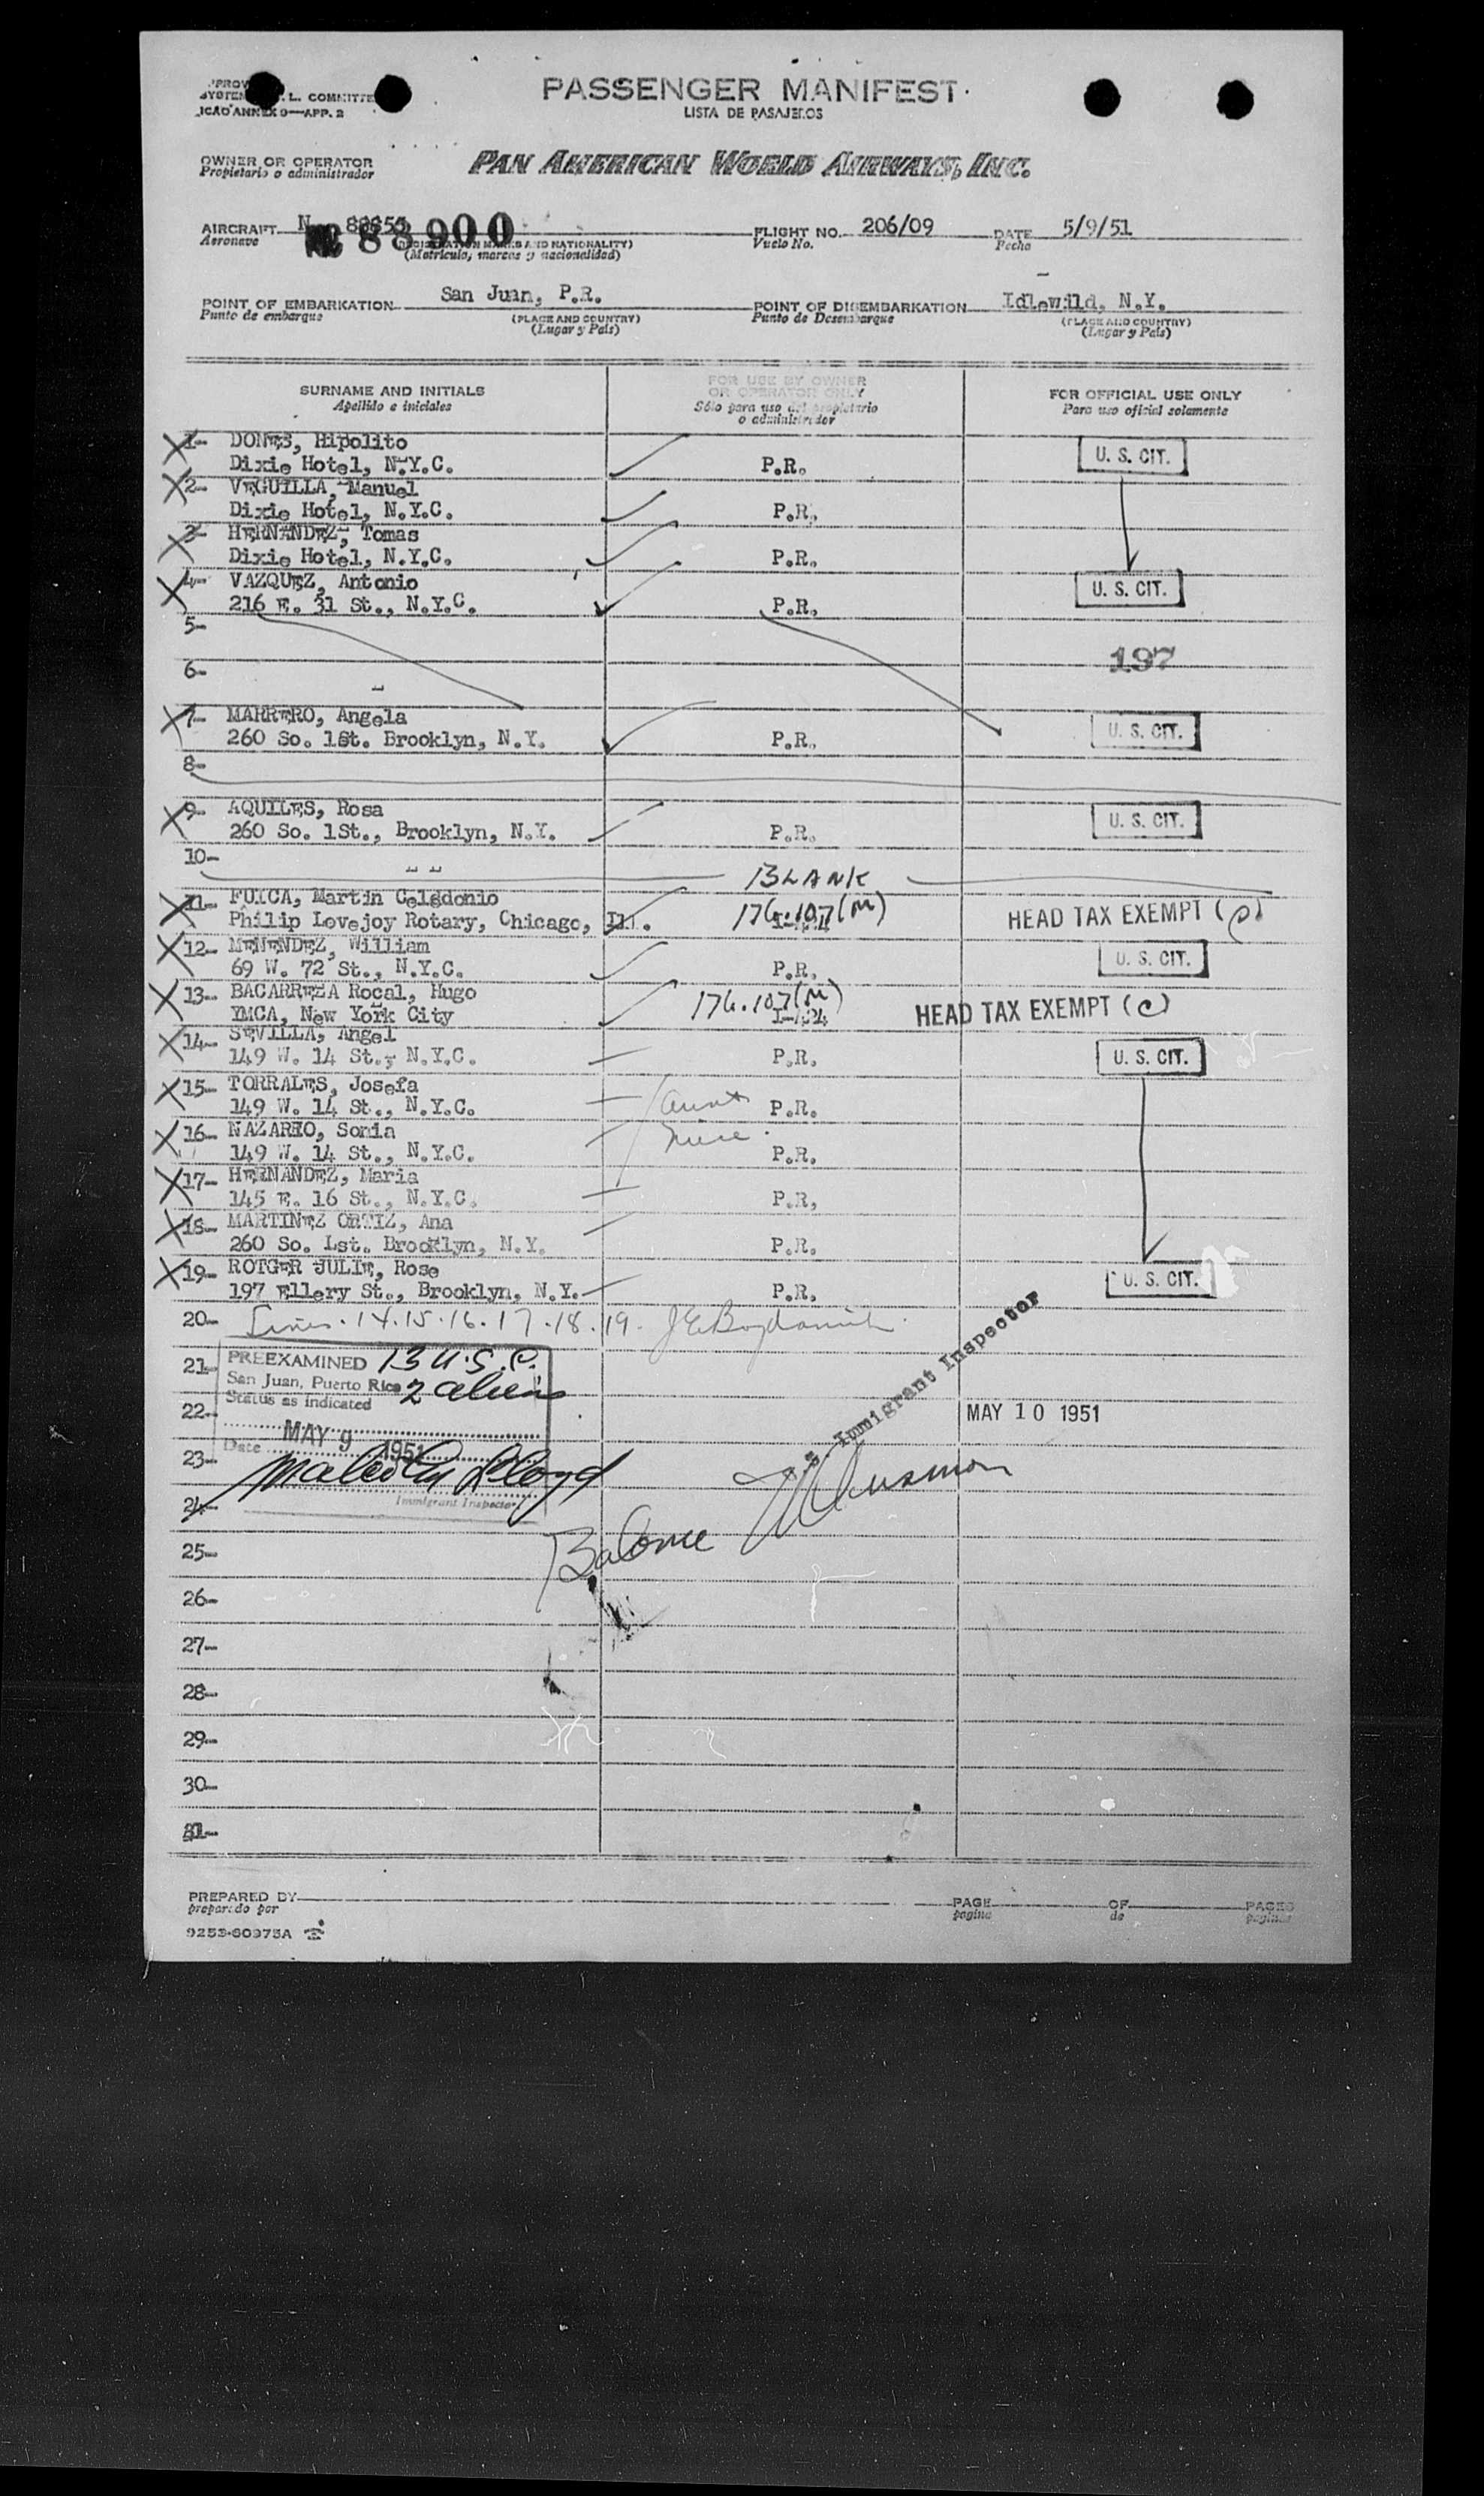 PASSENGER MANIFEST
L. COMMITTE
ICAO ANNEX 9—APP. 2
LISTA DE PASAJEROS
OWNER OR OPERATOR
Propietario o administrador
PAN AMERICAN WORLD AIRWAYS, INC.
AIRCRAFT N 88855 88900
Aeronave
(REGISTRATION MARKS AND NATIONALITY)
(Matricula, marcas y nacionalidad)
FLIGHT NO. 206/09
Vuelo No.
DATE 5/9/51
Fecha
POINT OF EMBARKATION San Juan, P.R.
Punto de embarque
(PLACE AND COUNTRY)
(Lugar y País)
POINT OF DISEMBARKATION Idlewild, N.Y.
Punto de Desembarque
(PLACE AND COUNTRY)
(Lugar y País)
SURNAME AND INITIALS
Apellido e iniciales
FOR USE BY OWNER
OR OPERATOR ONLY
Sólo para uso del propietario
o administrador
FOR OFFICIAL USE ONLY
Para uso oficial solamente
1- DONES, Hipolito
Dixie Hotel, N.Y.C. P.R. U. S. CIT.
2- VEGUILLA, Manuel
Dixie Hotel, N.Y.C. P.R.
3- HERNANDEZ, Tomas
Dixie Hotel, N.Y.C. P.R.
4- VAZQUEZ, Antonio
216 E. 31 St., N.Y.C. P.R. U. S. CIT.
5-
6- 197
7- MARRERO, Angela
260 So. 1St. Brooklyn, N.Y. P.R. U. S. CIT.
8-
9- AQUILES, Rosa
260 So. 1St., Brooklyn, N.Y. P.R. U. S. CIT.
10- BLANK
11- FUICA, Martin Celedonio
Philip Lovejoy Rotary, Chicago, Ill. 176.107(M) HEAD TAX EXEMPT
12- MENENDEZ, William
69 W. 72 St., N.Y.C. P.R. U. S. CIT.
13- BACARREZA Rocal, Hugo 176.107(M)
YMCA, New York City HEAD TAX EXEMPT (C)
14- SEVILLA, Angel
149 W. 14 St., N.Y.C. P.R. U. S. CIT.
15- TORRALES, Josefa
149 W. 14 St., N.Y.C. aunt P.R.
16- NAZARIO, Sonia
149 W. 14 St., N.Y.C. P.R.
17- HERNANDEZ, Maria
145 E. 16 St., N.Y.C. P.R.
18- MARTINEZ ORTIZ, Ana
260 So. 1st. Brooklyn, N.Y. P.R.
19- ROTGER JULIE, Rose
197 Ellery St., Brooklyn, N.Y. P.R. U. S. CIT.
20- Lines. 14.15.16.17.18.19.
21- PREEXAMINED 13 U.S.C.
San Juan, Puerto Rico 2 aliens
Status as indicated
22- MAY 10 1951
Date MAY 9 1951
Immigrant Inspector
23- Malcolm Lloyd
Immigrant Inspector
24-
Balance
25-
26-
27-
28-
29-
30-
31-
PREPARED BY
preparado por
PAGE
pagina
OF
de
PAGES
paginas
9253-60975A